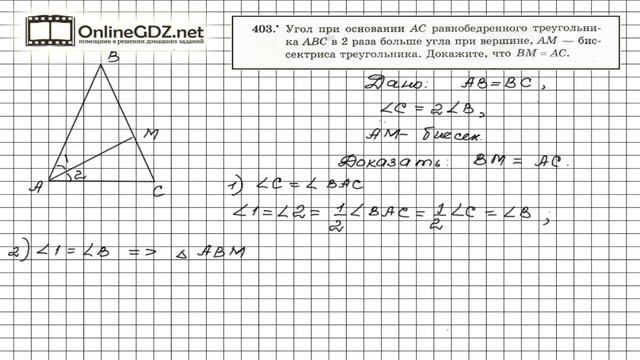 OnlineGDZ.net
ПОМОЩНИК В РЕШЕНИИ ДОМАШНИХ ЗАДАНИЙ
403.• Угол при основании AC равнобедренного треугольни-
ка ABC в 2 раза больше угла при вершине, AM — бис-
сектриса треугольника. Докажите, что BM = AC.
Дано: AB=BC,
∠C = 2∠B,
AM- биссек.
Доказать: BM = AC.
B
M
1
2
A
C
1) ∠C = ∠BAC
∠1=∠2= 1/2 ∠BAC = 1/2 ∠C = ∠B ;
2) ∠1=∠B => △ ABM